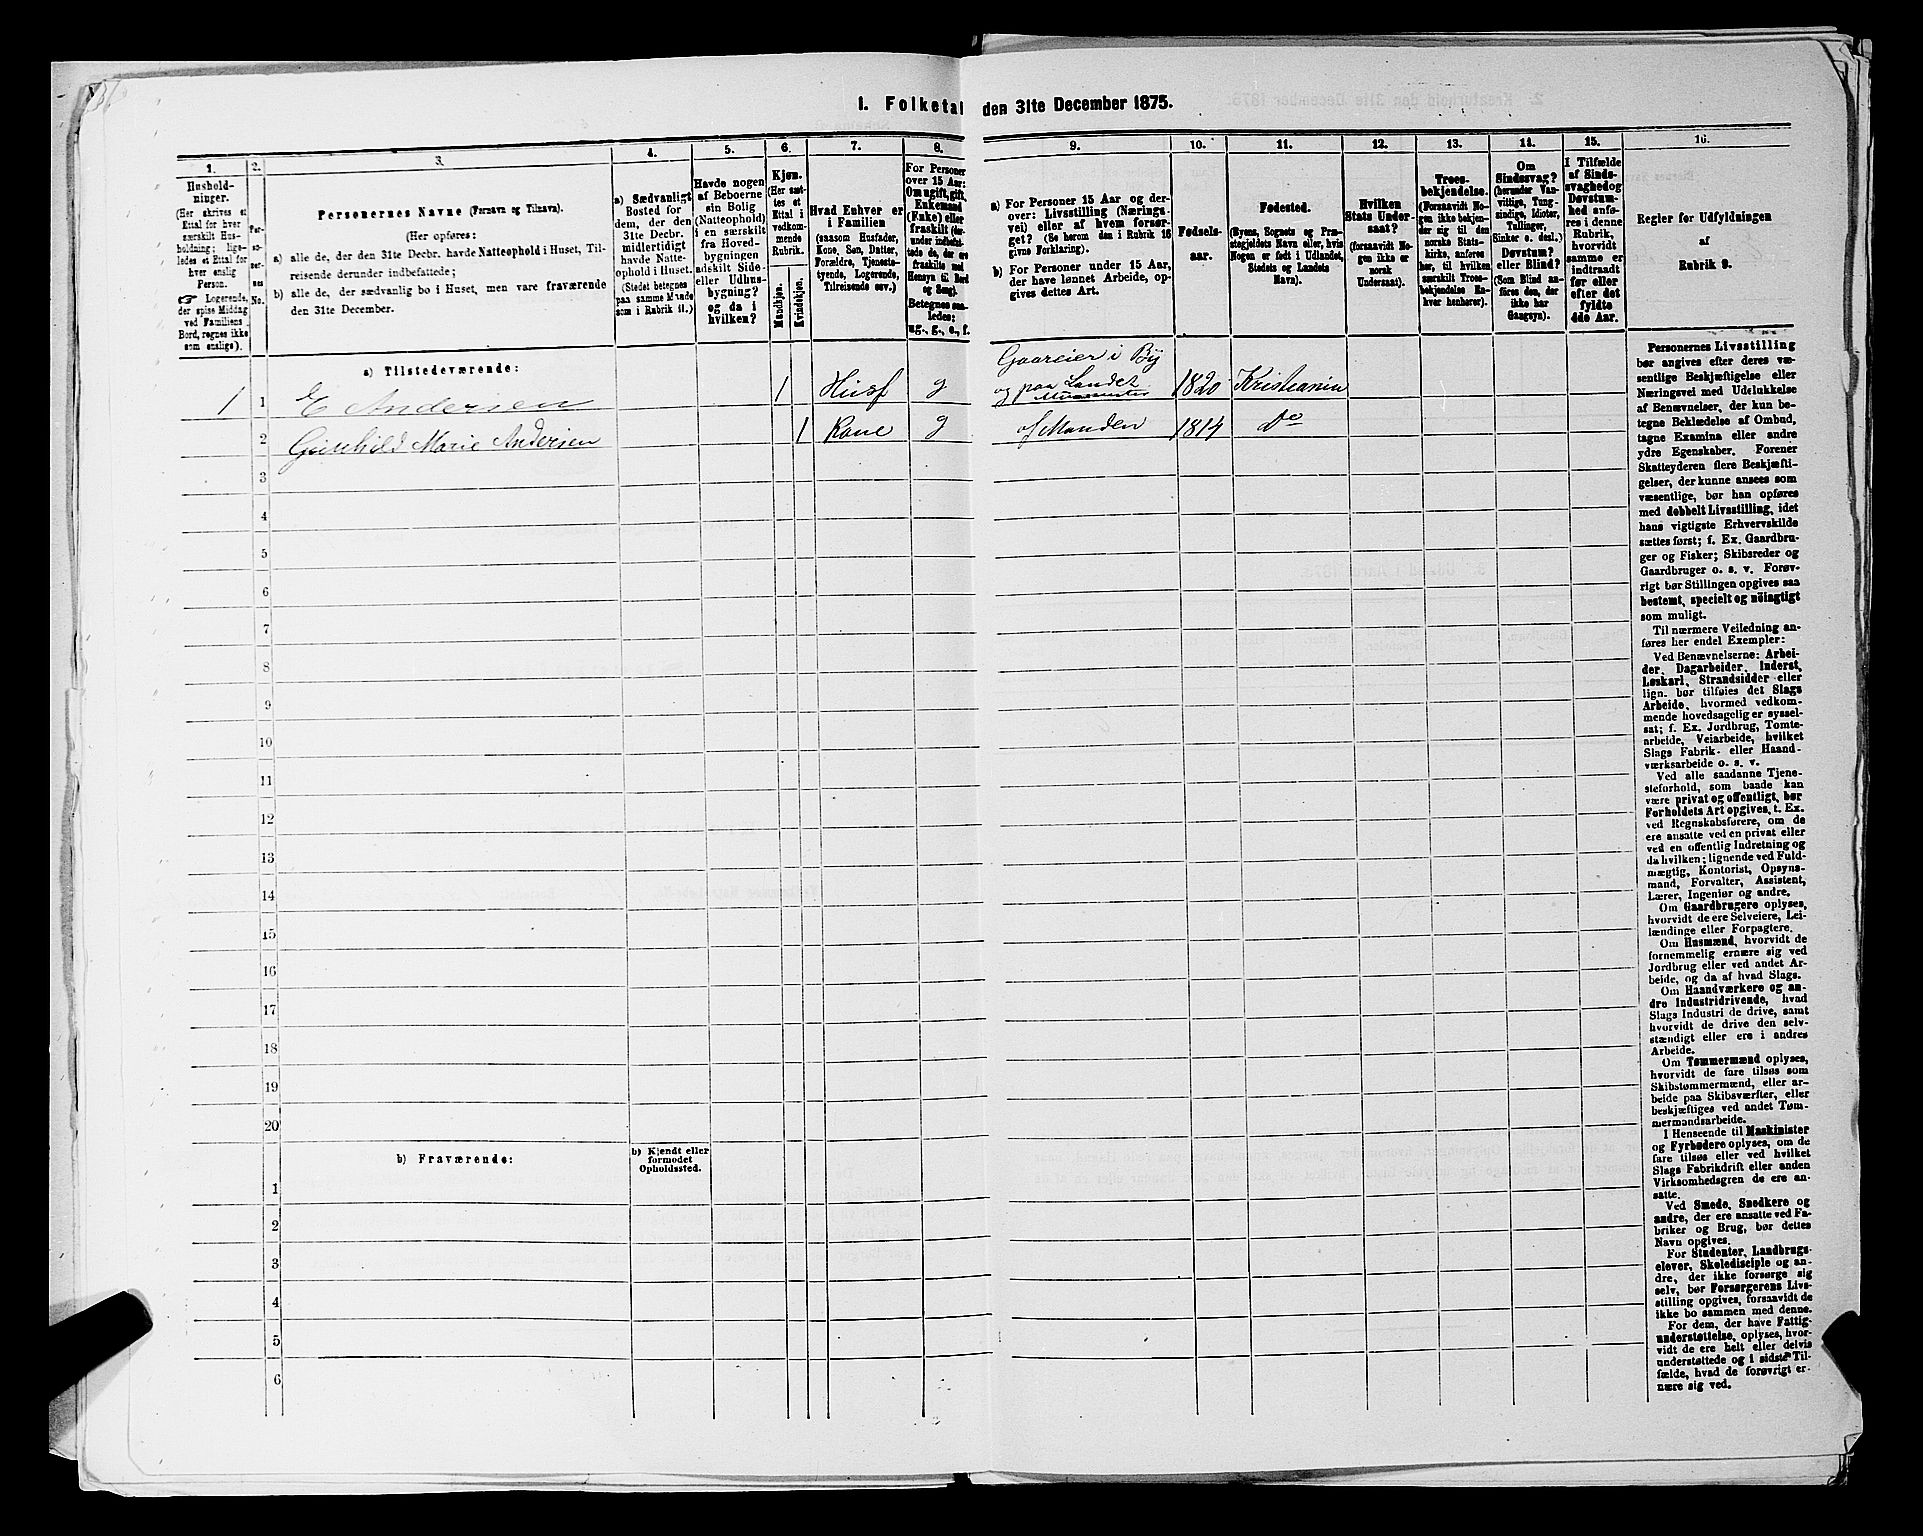 1. Folketal den 31te December 1875.
1.
Hushold-
ninger.
(Her skrives et
Ettal for hver
særskilt Hus-
holdning; lige-
ledes et Ettal for
hver enslig
Person.
☛ Logerende,
der spise Middag
ved Familiens
Bord, regnes ikke
som enslige).
2.
Per-
so-
ner-
nes
No.
3.
Personernes Navne (Fornavn og Tilnavn).
(Her opføres:
a) alle de, der den 31te Decbr. havde Natteophold i Huset, Til-
reisende derunder indbefattede;
b) alle de, der sædvanlig bo i Huset, men vare fraværende
den 31te December.
4.
a) Sædvanligt
Bosted for
dem, der den
31te Decbr.
midlertidigt
havde Natte-
ophold i Huset.
(Stedet betegnes
paa samme Maade
som i Rubrik 11.)
5.
Havde nogen
af Beboerne
sin Bolig
(Natteophold)
i en særskilt
fra Hoved-
bygningen
adskilt Side-
eller Udhus-
bygning?
og da i
hvilken?
6.
Kjøn.
(Her sæt-
tes et
Ettal i
vedkom-
mende
Rubrik.
Mandkjøn.
Kvindekjøn.
7.
Hvad Enhver er
i Familien
(saasom Husfader,
Kone, Søn, Datter,
Forældre, Tjeneste-
tyende, Logerende,
Tilreisende osv.)
8.
For Personer
over 15 Aar:
Om ugift, gift,
Enkemand
(Enke) eller
fraskilt (der-
under indbefat-
tede de, der ere
fraskilte med
Hensyn til Bord
og Seng).
Betegnes saa-
ledes:
ug., g., e., f.
9.
a) For Personer 15 Aar og der-
over: Livsstilling (Nærings-
vei) eller af hvem forsør-
get? (Se herom den i Rubrik 16
givne Forklaring).
b) For Personer under 15 Aar,
der have lønnet Arbeide, op-
gives dettes Art.
10.
Fødsels-
aar.
11.
Fødested.
(Byens, Sognets og Præ-
stegjeldets Navn eller, hvis
Nogen er født i Udlandet,
Stedets og Landets
Navn).
12.
Hvilken
Stats Under-
saat?
(forsaavidt No-
gen ikke er
norsk
Undersaat).
13.
Troes-
bekjendelse.
(Forsaavidt No-
gen ikke bekjen-
der sig til den
norske Stats-
kirke, anføres
her, til hvilken
særskilt Troes-
bekjendelse En-
hver henhører).
14.
Om
Sindssvag?
(herunder Van-
vittige, Tung-
sindige, Idioter,
Tullinger,
Sinker o. desl.)
Døvstum?
eller Blind?
(Som Blind an-
føres den, der
ikke har
Gangsyn).
15.
I Tilfælde
af Sinds-
svaghed og
Døvstum-
hed anfø-
res i denne
Rubrik,
hvorvidt
samme er
indtraadt
før eller
efter det
fyldte
4de Aar.
16.
Regler for Udfyldningen
af
Rubrik 9.
a) Tilstedeværende:
1 1 E Andersen 1 Husf g Gaareier i By
og paa Landet 1820 Kristiania
2 Gunhild Marie Andersen 1 Kone g af Manden 1814 do
3
4
5
6
7
8
9
10
11
12
13
14
15
16
17
18
19
20
b) Fraværende:
b) Kjendt eller
formodet
Opholdssted.
1
2
3
4
5
6
Personernes Livsstilling
bør angives efter deres væ-
sentlige Beskjæftigelse eller
Næringsvei med Udelukkelse
af Benævnelser, der kun be-
tegne Beklædelse af Ombud,
tagne Examina eller andre
ydre Egenskaber. Forener
Skatteyderen flere Beskjæfti-
gelser, der kunne ansees som
væsentlige, bør han opføres
med dobbelt Livsstilling, idet
hans vigtigste Erhvervskilde
sættes først; f. Ex. Gaardbru-
ger og Fisker; Skibsreder og
Gaardbruger o. s. v. Forøv-
rigt bør Stillingen opgives saa
bestemt, specielt og nöiagtigt
som muligt.
Til nærmere Veiledning an-
føres her endel Exempler:
Ved Benævnelserne: Arbei-
der, Dagarbeider, Inderst,
Løskarl, Strandsidder eller
lign. bør tilføies det Slags
Arbeide, hvormed vedkom-
mende hovedsagelig er syssel-
sat; f. Ex. Jordbrug, Tømte-
arbeide, Veiarbeide, hvilket
Slags Fabrik- eller Haand-
værksarbeide o. s. v.
Ved alle saadanne Tjene-
steforhold, som baade kan
være privat og offentligt, bør
Forholdets Art opgives, t. Ex.
ved Regnskabsførere, om de
ere ansatte ved en privat eller
ved en offentlig Indretning og
da hvilken; lignende ved Fuld-
mægtig, Kontorist, Opsyns-
mand, Forvalter, Assistent,
Lærer, Ingeniør og andre.
Om Gaardbrugere oplyses,
hvorvidt de ere Selveiere, Lei-
lændinge eller Forpagtere.
Om Husmænd, hvorvidt de
fornemmelig ernære sig ved
Jordbrug eller ved andet Ar-
beide, og da af hvad Slags.
Om Haandværkere og an-
dre Industridrivende, hvad
Slags Industri de drive, samt
hvorvidt de drive den selv-
stændigt eller ere i andres
Arbeide.
Om Tømmermænd oplyses,
hvorvidt de fare tilsøs som
Skibstømmermænd, eller ar-
beide paa Skibsværfter, eller
beskjæftiges ved andet Tøm-
mermandsarbeide.
I Henseende til Maskinister
og Fyrbødere oplyses, om de
fare tilsøs eller ved hvilket
Slags Fabrikdrift eller anden
Virksomhedsgren de ere an-
satte.
Ved Smede, Snedkere og
andre, der ere ansatte ved Fa-
briker og Brug, bør dettes
Navn opgives.
For Studenter, Landbrugs-
elever, Skoledisciple og an-
dre, der ikke forsørge sig
selv, bør Forsørgerens Livs-
stilling opgives, forsaavidt de
ikke bo sammen med denne.
For dem, der have Fattig-
understøttelse, oplyses, hvor-
vidt de ere helt eller delvis
understøttede og i sidste Til-
fælde, hvad de forøvrigt er-
nære sig ved.